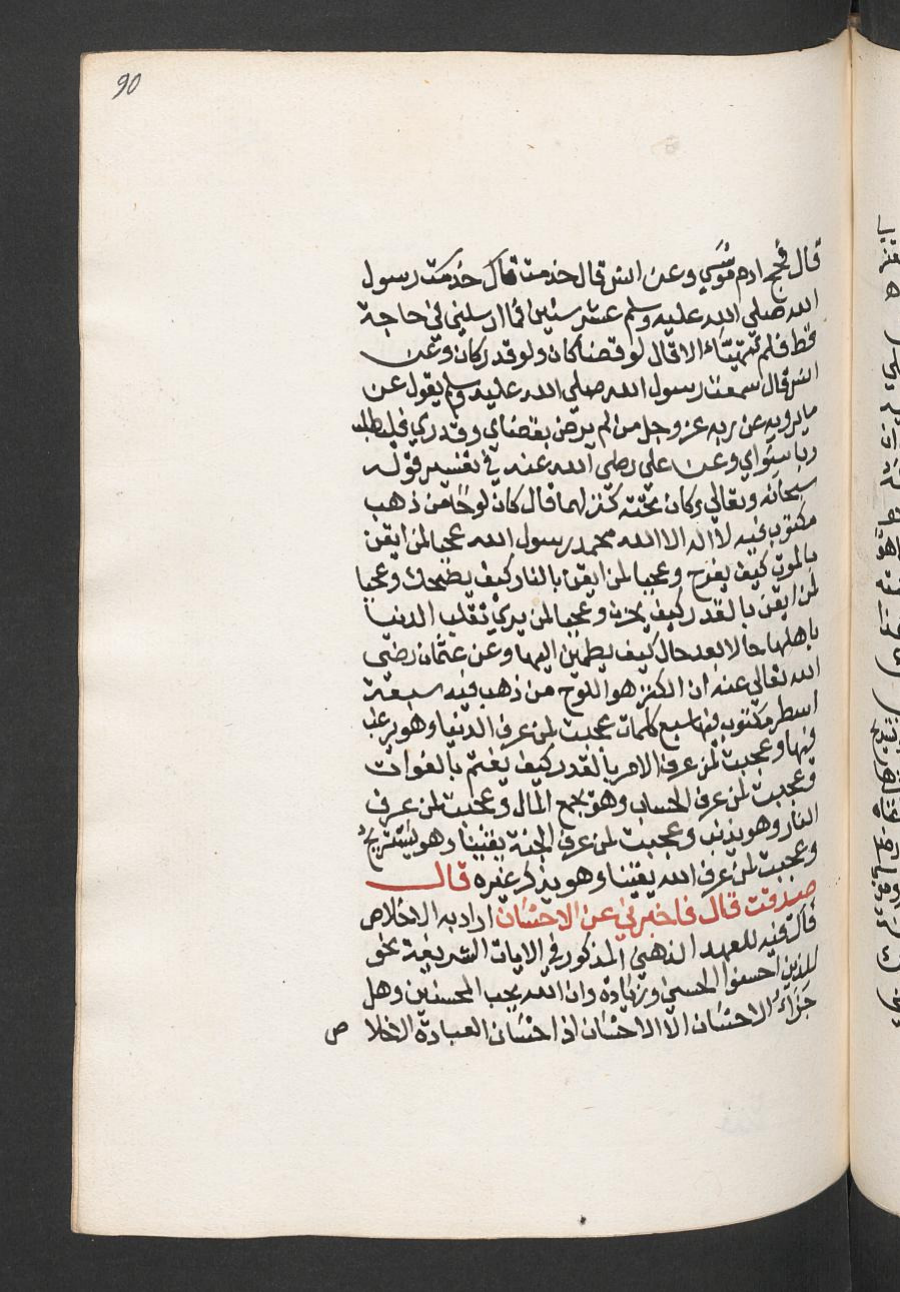 90
قال فحج ادم موسى وعن انس قال خدمت قال خدمت رسول
الله صلي الله عليه وسلم عشر سنين فما ارسلني في حاجة
قط فلم تتهيّاء الا قال لو قضا كان ولو قدر كان وعن
انس قال سمعت رسول الله صلي الله عليه وسلم يقول عن
ما يرويه عن ربه عز وجل من لم يرض بقضاي وقدري فليطلب
ربا سواي وعن علي رضى الله عنه في تفسير قوله
سبحانه وتعالي وكان تحته كنز لهما قال كان لوحا من ذهب
مكتوب فيه لا اله الا الله محمد رسول الله عجبا لمن ايقن
بالموت كيف يفرح وعجبا لمن ايقن بالنار كيف يضحك وعجبا
لمن ايقن بالقدر كيف يحزن وعجبا لمن يري تقلب الدنيا
باهلها حالا بعد حال كيف يطمين اليها وعن عثمان رضي
الله تعالي عنه ان الكنز هو اللوح من ذهب فيه سبعة
اسطر مكتوب فيها سبع كلمات عجبت لمن عرف الدنيا وهو يرغب
فيها وعجبت لمن عرف الامر بالقدر كيف يغتم بالفوات
وعجبت لمن عرف الحساب وهو يجمع المال وعجبت لمن عرف
النار وهو يذنب وعجبت لمن عرف الجنة يقينا وهو يستريح
وعجبت لمن عرف الله يقينا وهو يذكر غيره قال
صدقت قال فاخبرني عن الاحسان اراد به الاخلاص
فال فيه للعهد الذهني المذكور في الايات الشريفة نحو
للذين احسنوا الحسني وزيادة وان الله يحب المحسنين وهل
جزاء الاحسان الا الاحسان اذ احسان العبادة الاخلا ص